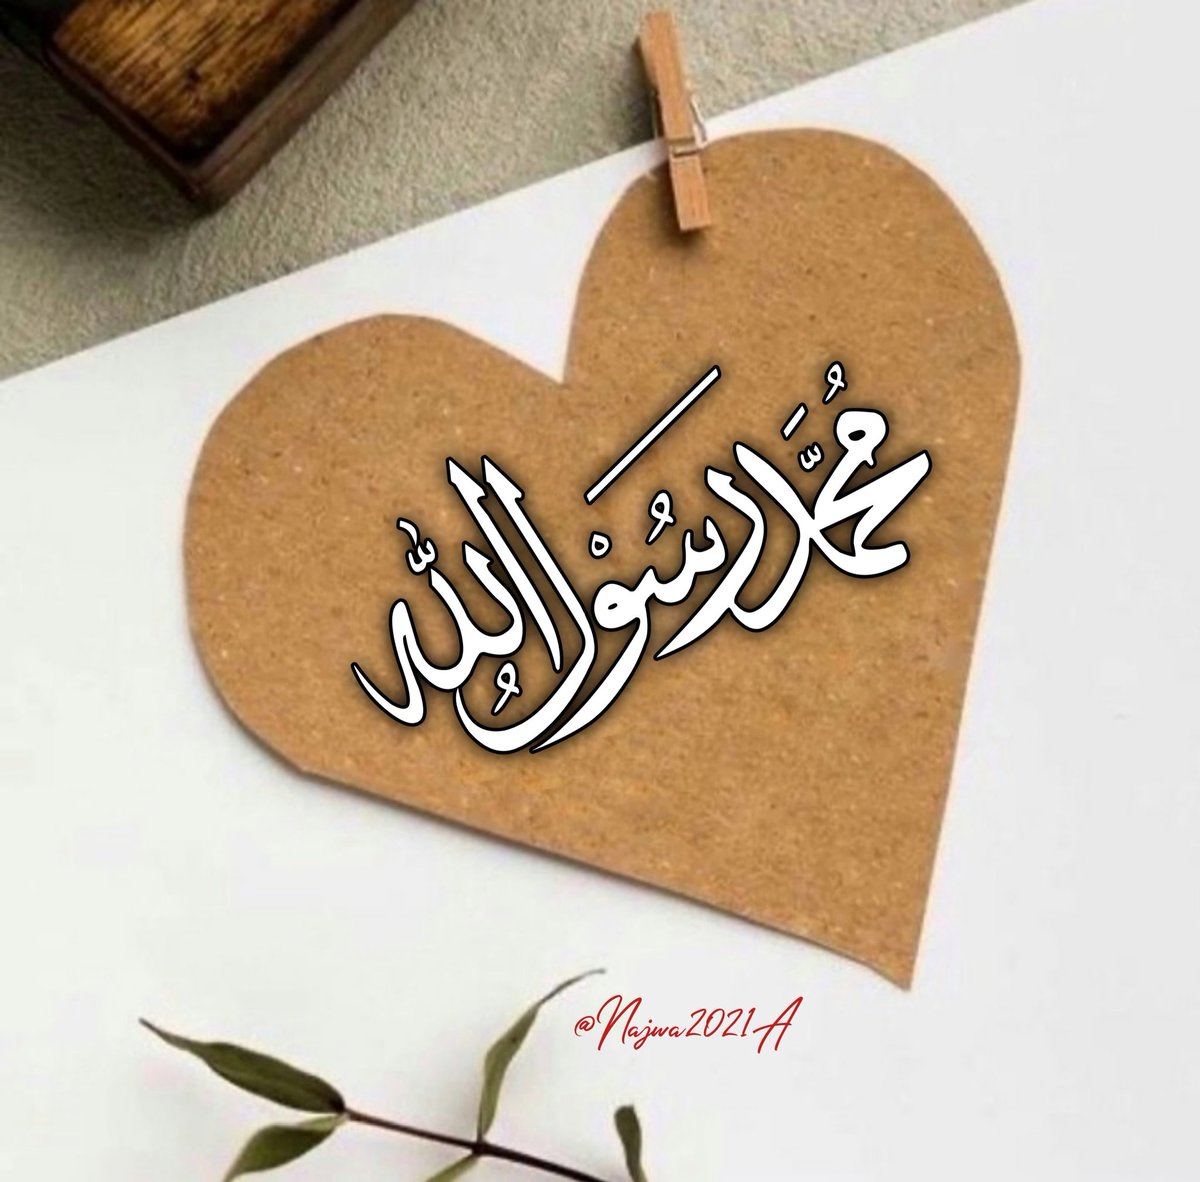 مُحَمَّد رَسُوْلُ اللّٰه
@Najwa2021A